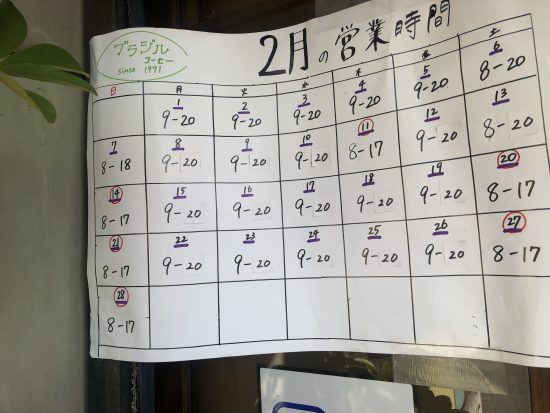 ブラジル
コーヒー
since 1971
2月の営業時間
日 月 火 水 木 金 土
1 2 3 4 5 6
9-20 9-20 9-20 9-20 9-20 8-20
7 8 9 10 11 12 13
8-18 9-20 9-20 9-20 8-17 9-20 8-20
14 15 16 17 18 19 20
8-17 9-20 9-20 9-20 9-20 9-20 8-17
21 22 23 24 25 26 27
8-17 9-20 9-20 9-20 9-20 9-20 8-17
28
8-17